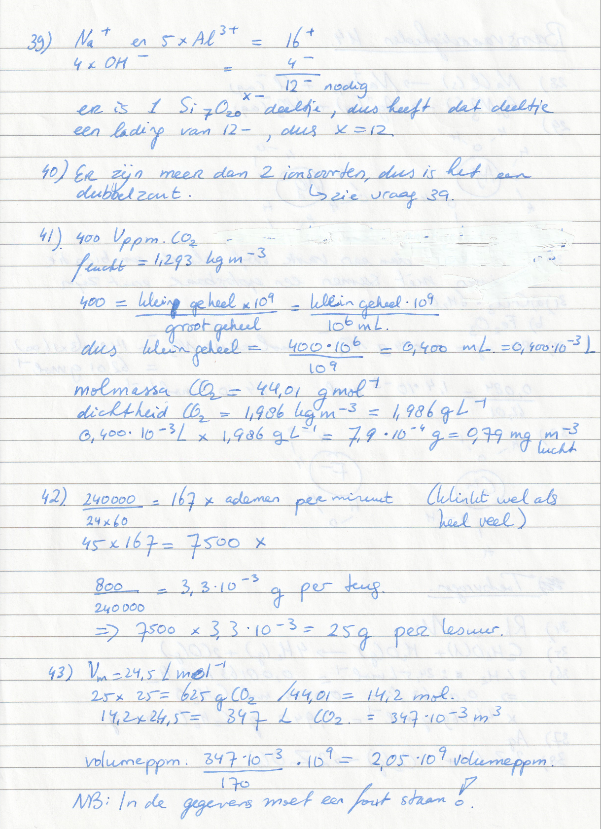 39) Na⁺ en 5 x Al³⁺ = 16⁺
4 x OH⁻ = 4⁻
12⁻ nodig
er is 1 Si₇O₂₀ˣ⁻ deeltje, dus heeft dat deeltje
een lading van 12-, dus x = 12.
40) Er zijn meer dan 2 ionsoorten, dus is het een
dubbelzout. ↳ zie vraag 39.
41) 400 Vppm. CO₂
lucht = 1,293 kg m⁻³
400 = klein geheel x 10⁹ / groot geheel = klein geheel · 10⁹ / 10⁶ mL.
dus klein geheel = 400 · 10⁶ / 10⁹ = 0,400 mL = 0,400·10⁻³ L
molmassa CO₂ = 44,01 g mol⁻¹
dichtheid CO₂ = 1,986 kg m⁻³ = 1,986 g L⁻¹
0,400 · 10⁻³ L x 1,986 g L⁻¹ = 7,9 · 10⁻⁴ g = 0,79 mg m⁻³ lucht
42) 240000 / 24x60 = 167 x ademen per minuut (klinkt wel als
heel veel)
45 x 167 = 7500 x
800 / 240000 = 3,3·10⁻³ g per teug.
=> 7500 x 3,3·10⁻³ = 25 g per lesuur.
43) Vm = 24,5 L mol⁻¹
25 x 25 = 625 g CO₂ /44,01 = 14,2 mol.
14,2 x 24,5 = 347 L CO₂ = 347·10⁻³ m³
volumeppm. 347·10⁻³ / 170 · 10⁹ = 2,05·10⁹ volumeppm.
NB: In de gegevens moet een fout staan!